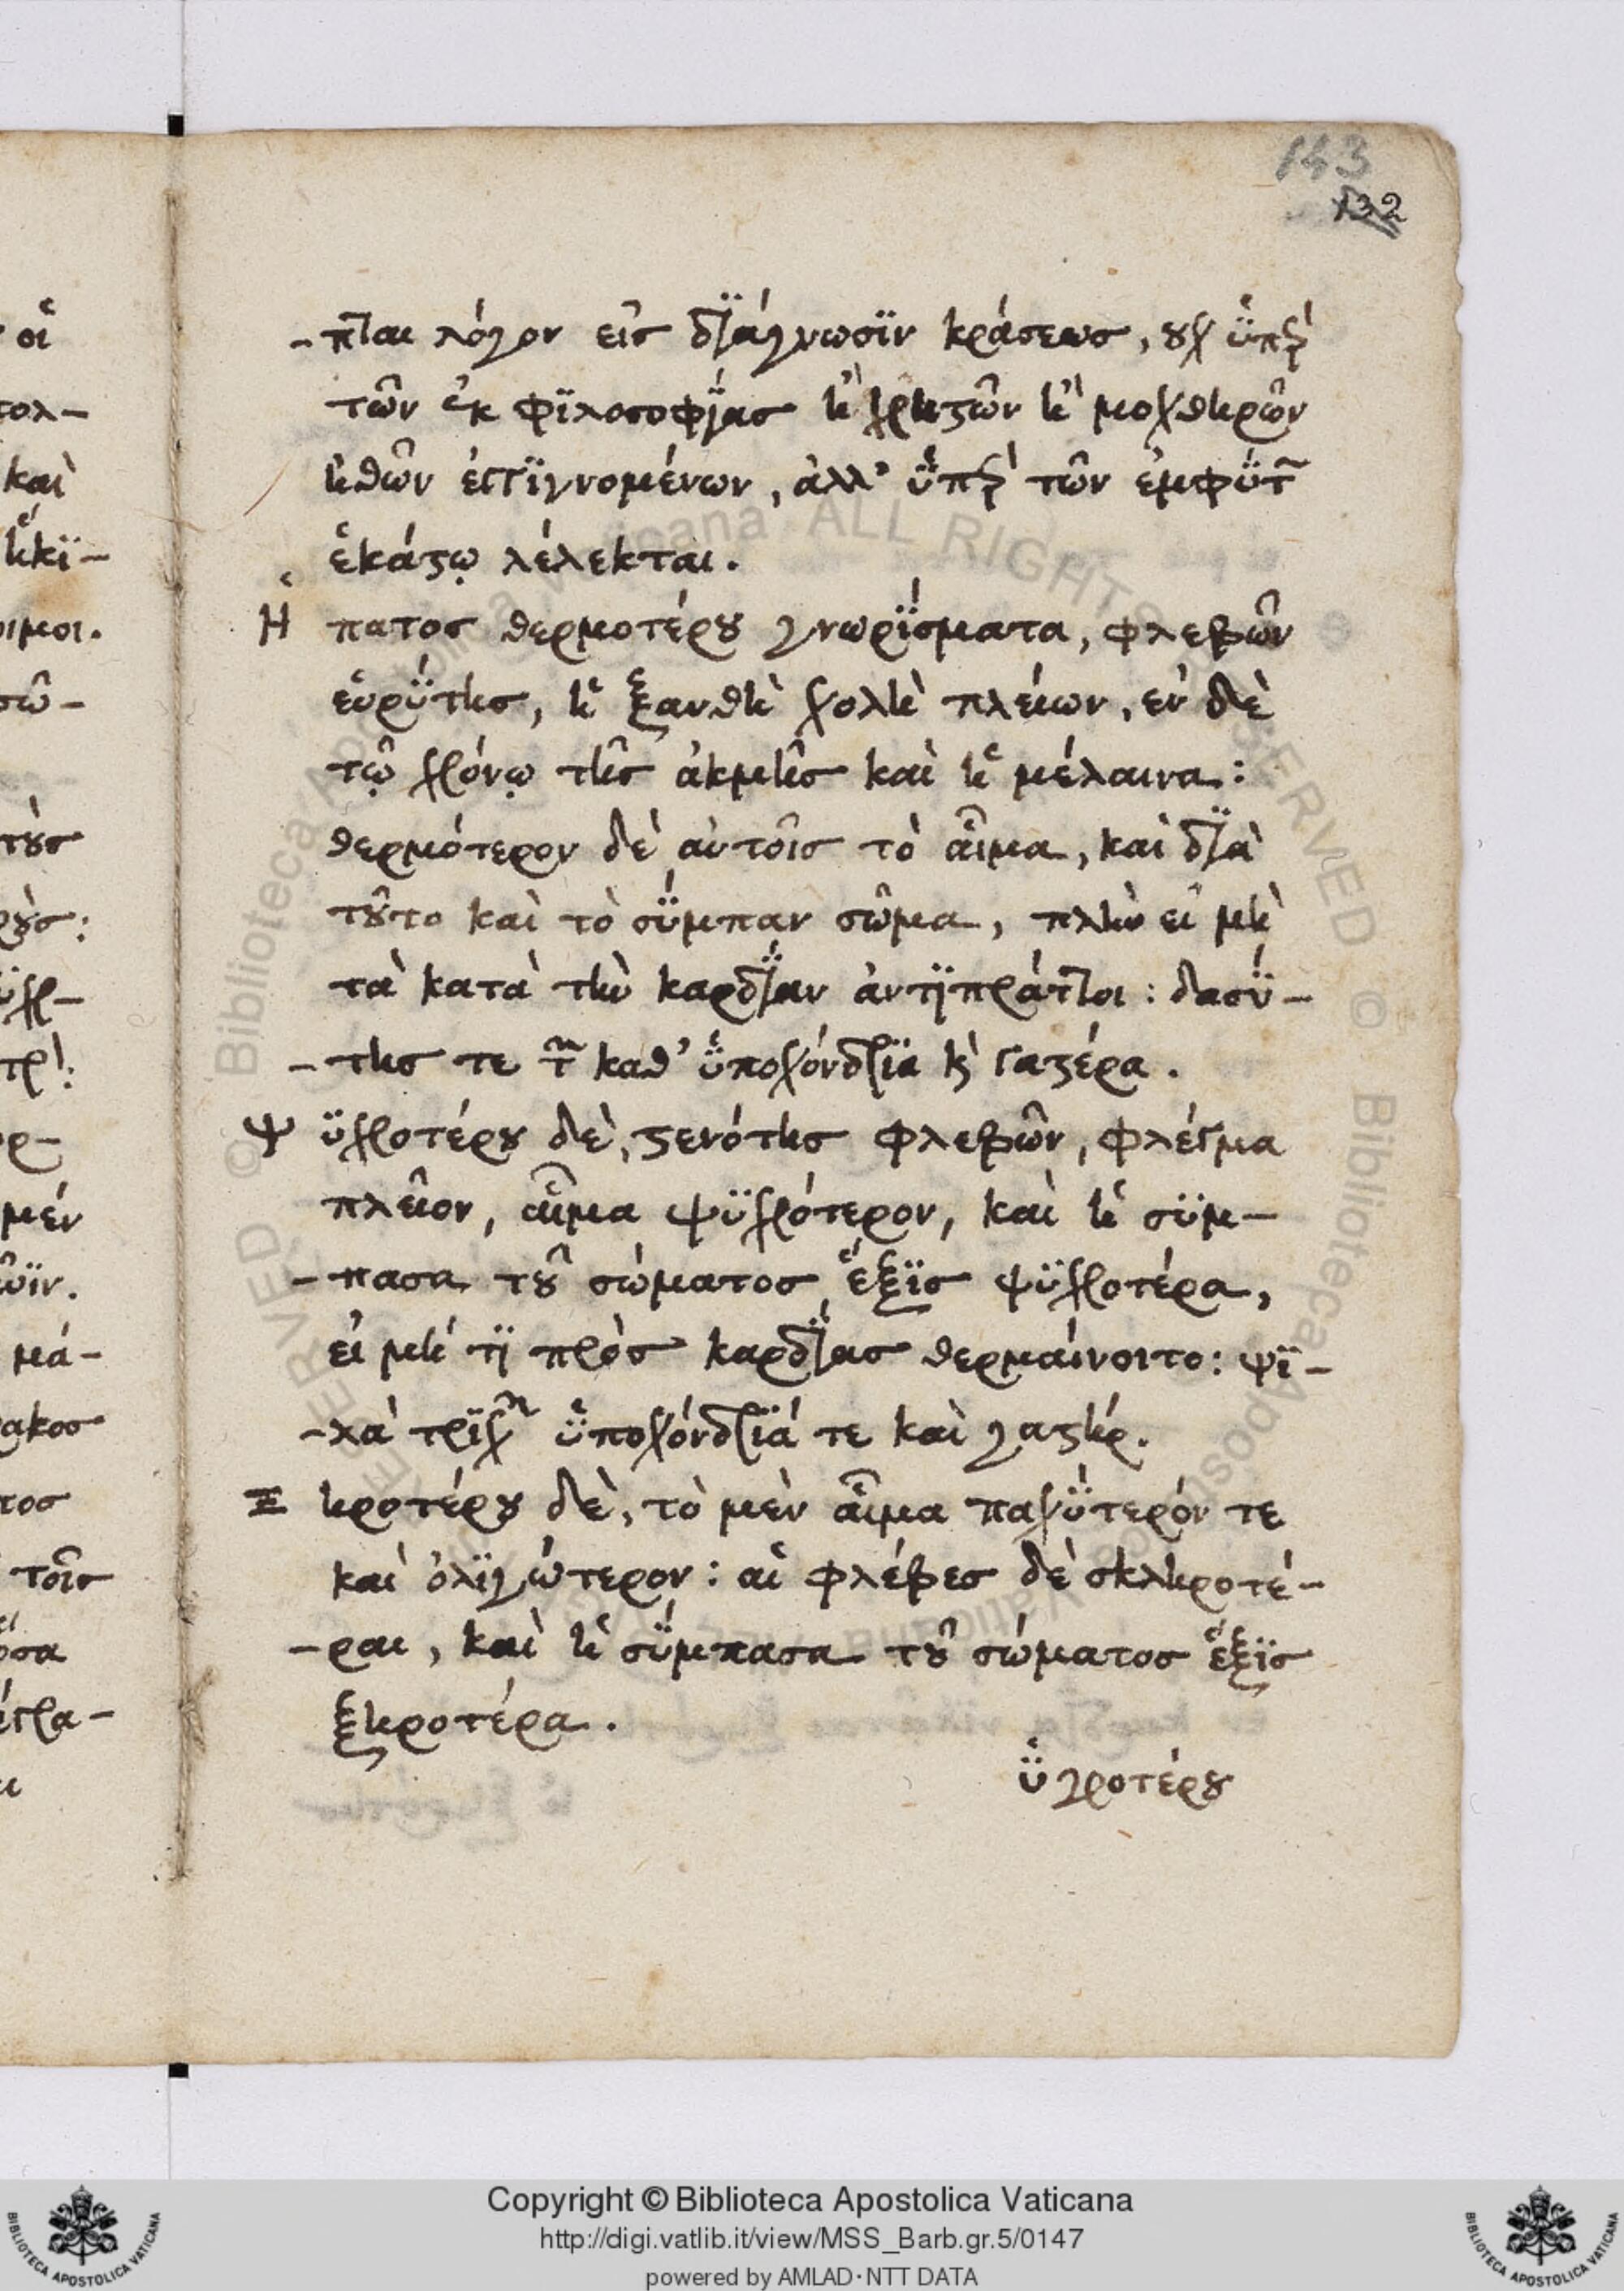 143
132
-πται λόγον εἰς διάγνωσιν κράσεως, οὐχ ὑπὲρ
τῶν ἐκ φιλοσοφίας ἢ χρηστῶν ἢ μοχθηρῶν
ἠθῶν ἐπιγιγνομένων, ἀλλ' ὑπὲρ τῶν ἐμφύτ
ἑκάστῳ λέλεκται.
Ἥπατος θερμοτέρου γνωρίσματα, φλεβῶν
εὐρύτης, ἡ ξανθὴ χολὴ πλείων, ἐν δὲ
τῷ χρόνῳ τῆς ἀκμῆς καὶ ἡ μέλαινα:
θερμότερον δὲ αὐτοῖς τὸ αἷμα, καὶ διὰ
τοῦτο καὶ τὸ σύμπαν σῶμα, πλὴν εἰ μὴ
τὰ κατὰ τὴν καρδίαν ἀντιπράττοι: δασύ-
-της τε τῶν καθ' ὑποχόνδρια καὶ γαστέρα.
Ψυχροτέρου δὲ, στενότης φλεβῶν, φλέγμα
πλεῖον, αἷμα ψυχρότερον, καὶ ἡ σύμ-
-πασα τοῦ σώματος ἕξις ψυχροτέρα,
εἰ μή τι πρὸς καρδίας θερμαίνοιτο: ψι-
-λὰ τριχῶν ὑποχόνδριά τε καὶ γαστήρ.
Ξηροτέρου δὲ, τὸ μὲν αἷμα παχύτερόν τε
καὶ ὀλιγώτερον: αἱ φλέβες δὲ σκληροτέ-
-ραι, καὶ ἡ σύμπασα τοῦ σώματος ἕξις
ξηροτέρα.
ὑγροτέρου
Copyright © Biblioteca Apostolica Vaticana
http://digi.vatlib.it/view/MSS_Barb.gr.5/0147
powered by AMLAD·NTT DATA